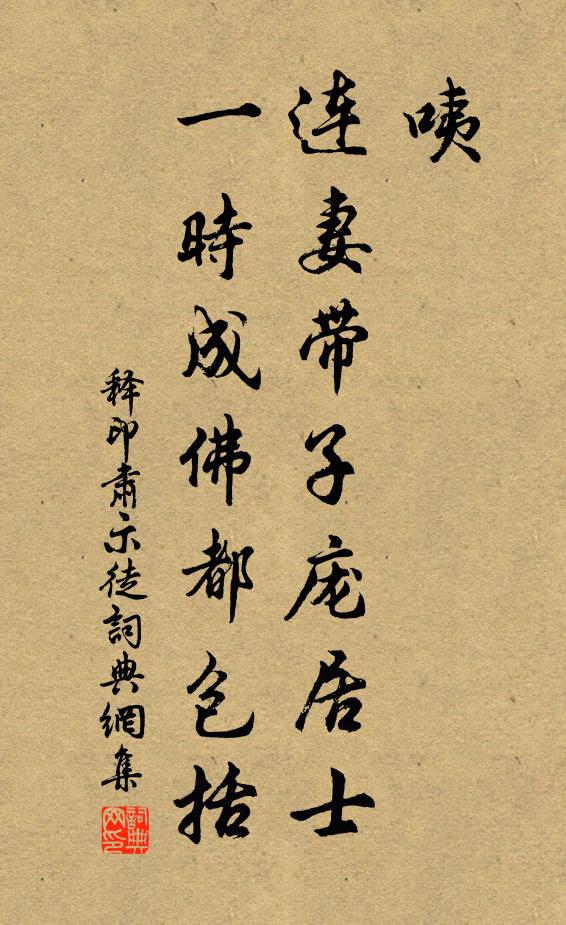 咦
连妻带子庞居士
一時成佛都包括
释印肃示徒詞典網集
詞典网印